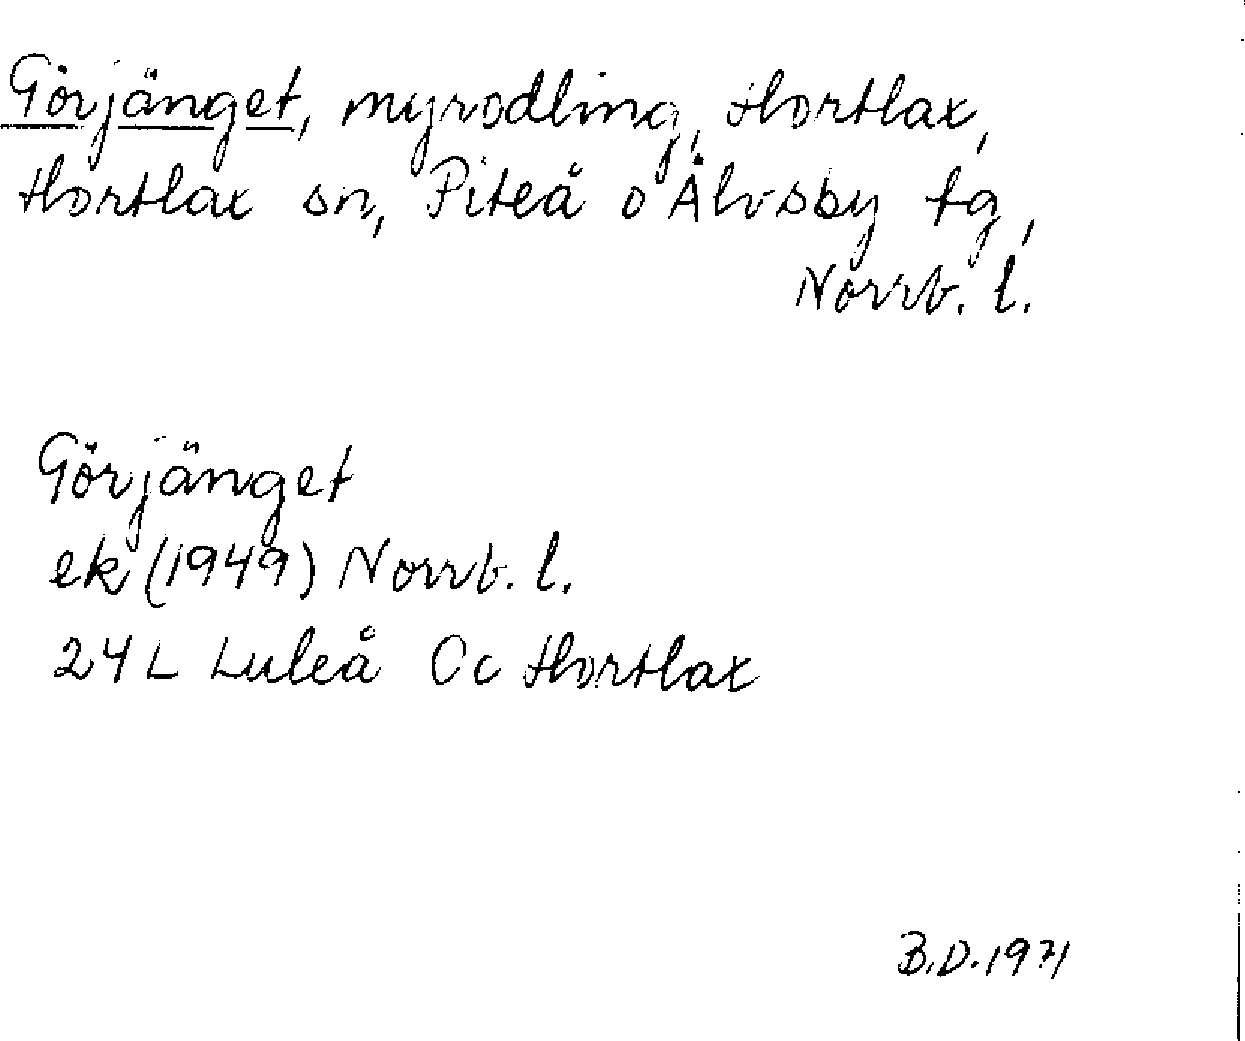 Görjänget, myrodling, Hortlax,
Hortlax sn, Piteå o Älvsby tg,
Norrb. l.
Görjänget
ek (1949) Norrb. l.
24 L Luleå 0c Hortlax
B.D.1971